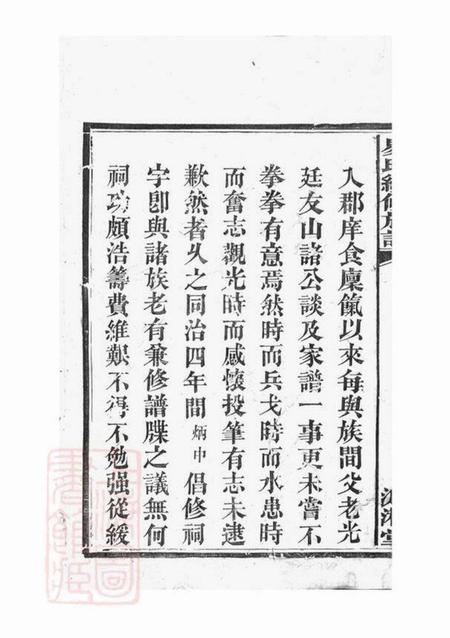 入郡庠食廩餼以來每與族間父老光
廷友山諸公談及家譜一事更未嘗不
拳拳有意焉然時而兵戈時而水患時
而奮志觀光時而感懷投筆有志未逮
歉然者久之同治四年間炳申倡修祠
宇卽與諸族老有兼修譜牒之議無何
祠功頗浩籌費維艱不得不勉强從緩